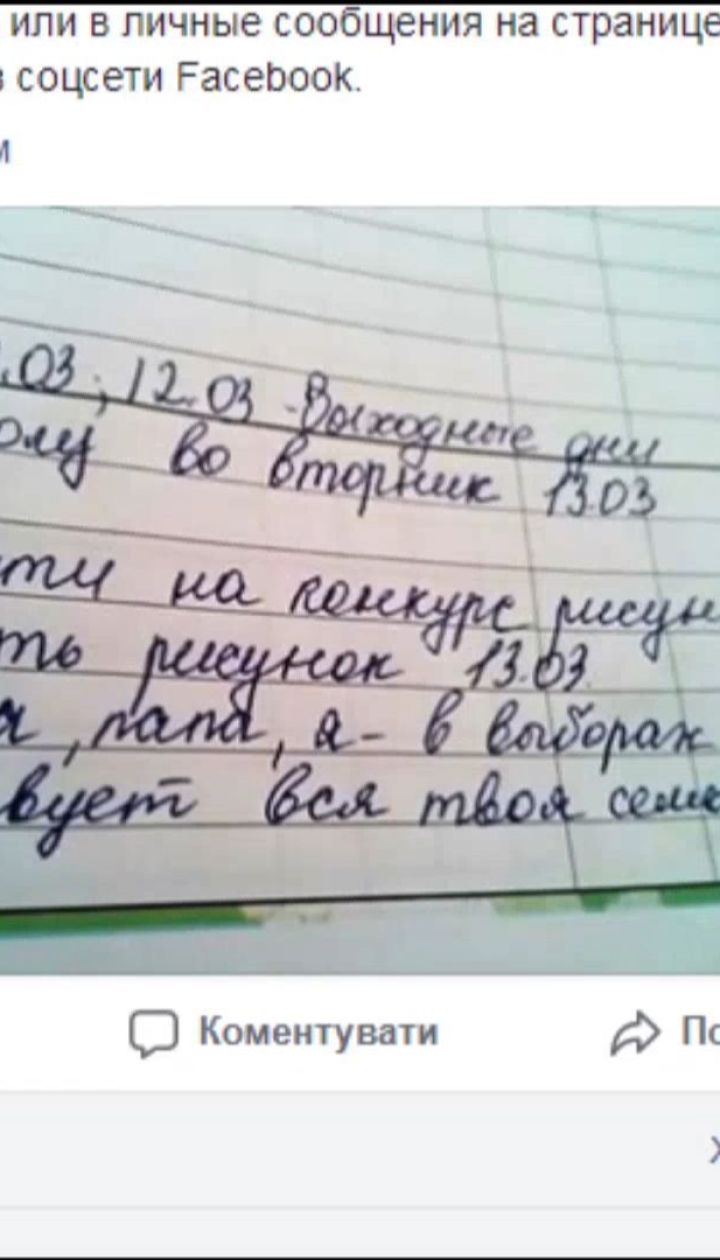 или в личные сообщения на странице
в соцсети Facebook.
.03, 12.03 - Выходные дни
олу во вторник 13.03
ти на конкурс рисун
ть рисунок 13.03.
я, папа, я - в выборах
вует вся твоя семь
Коментувати
По